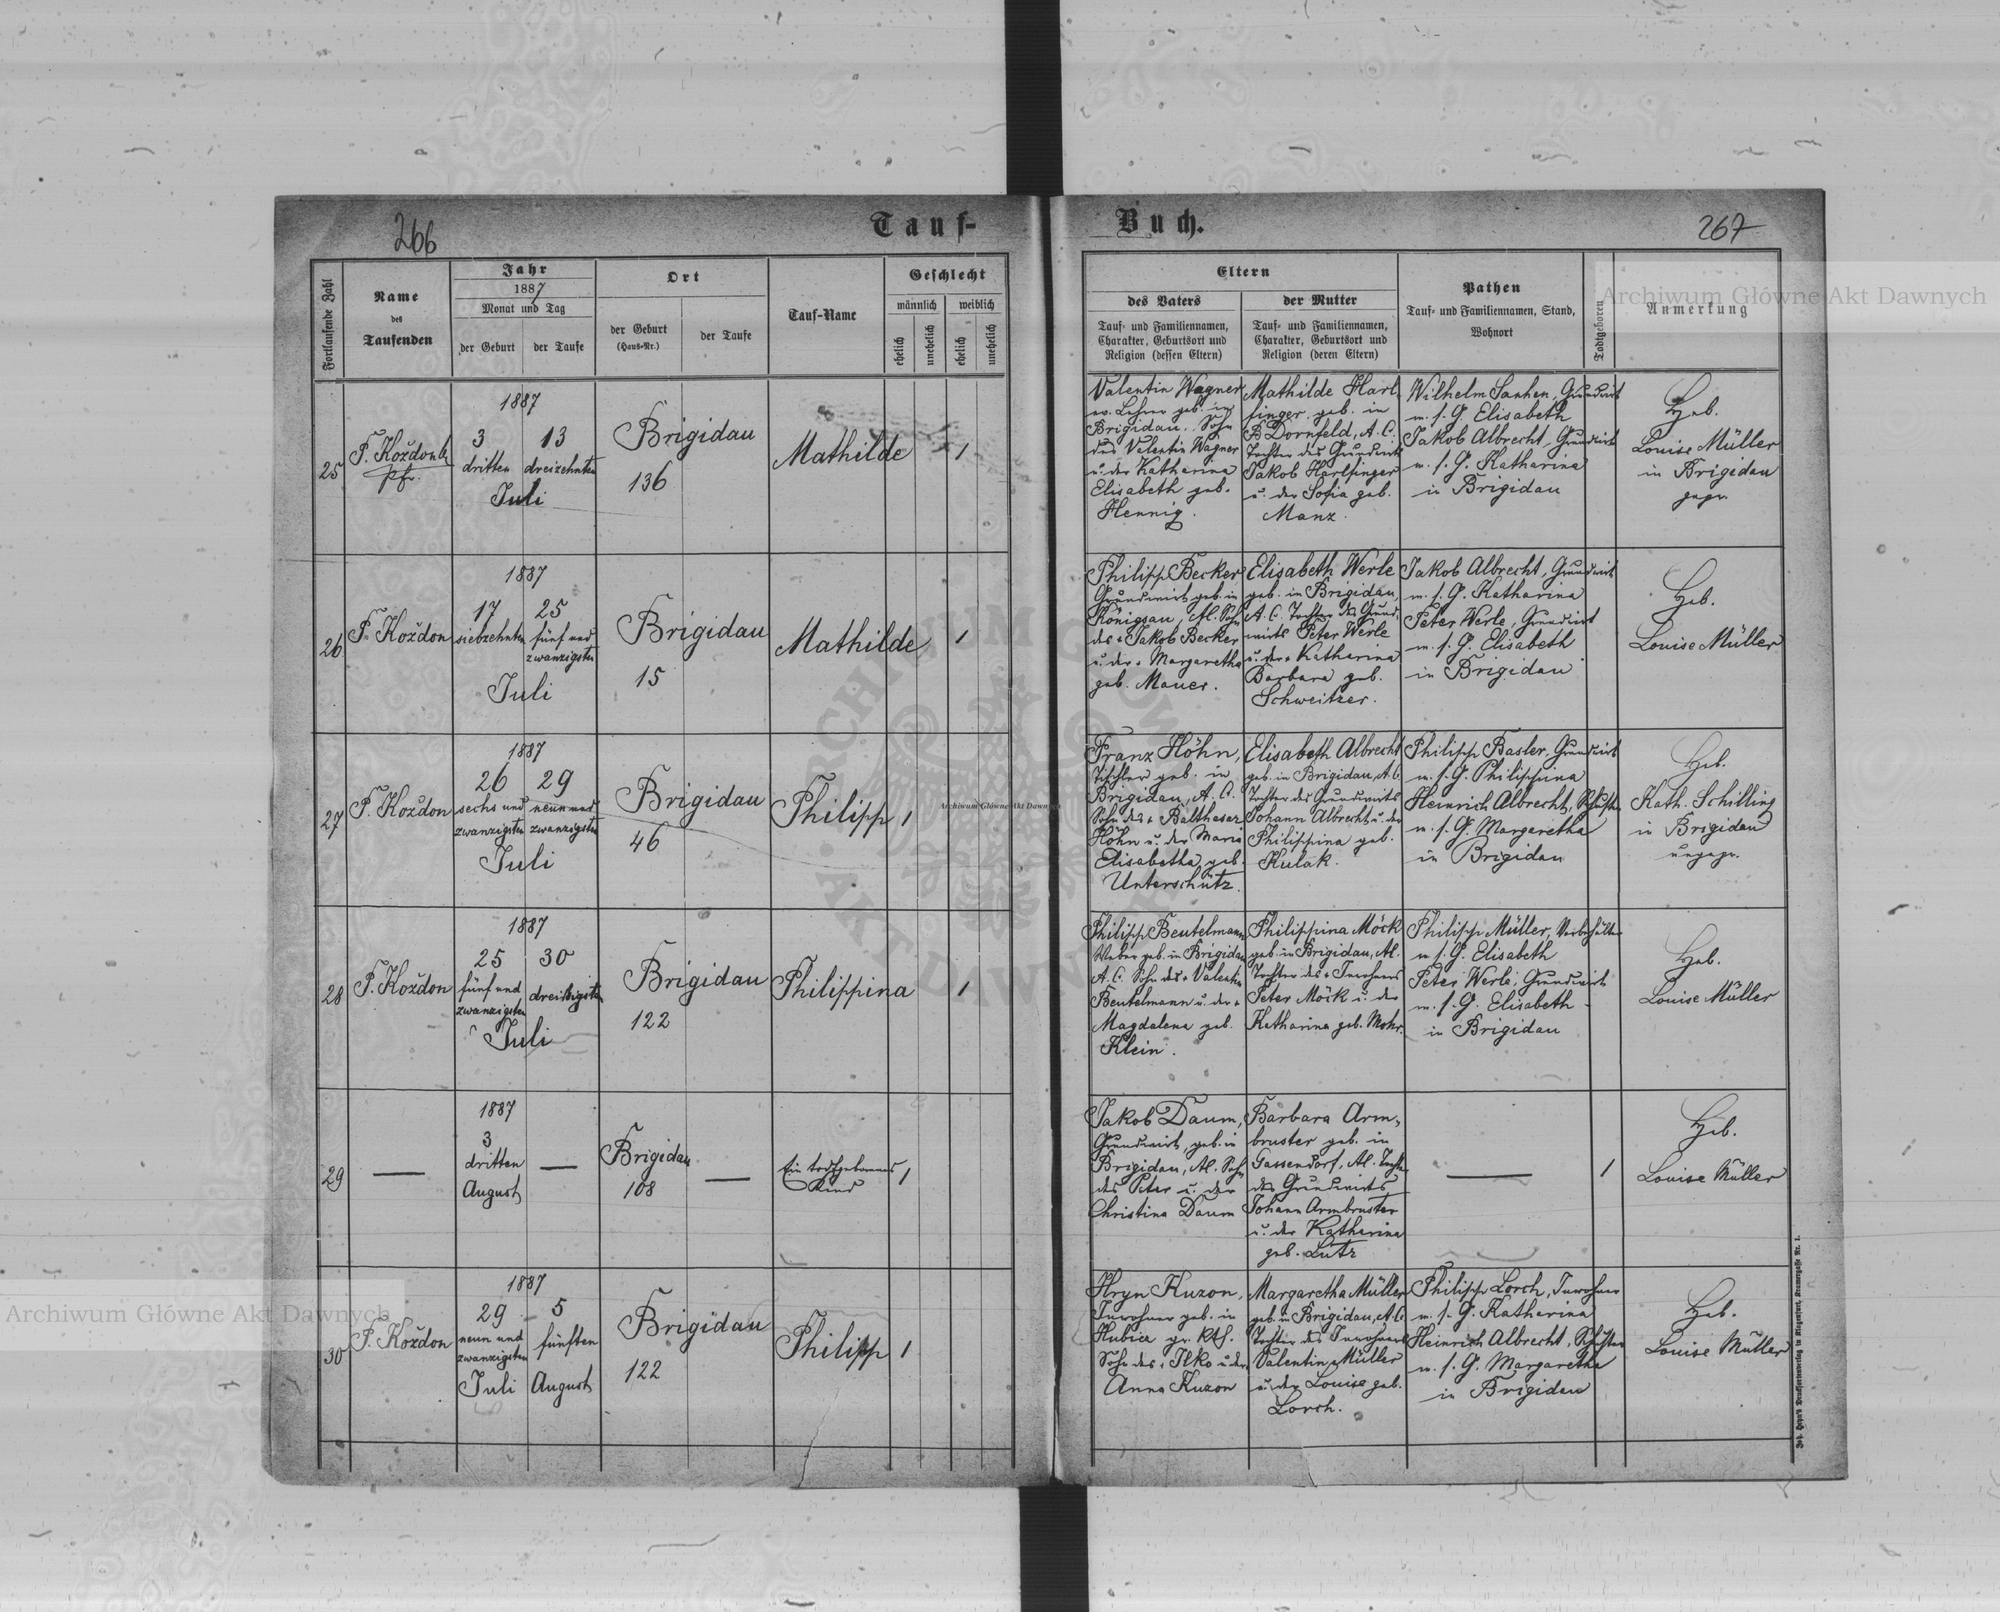 266
Tauf-
Buch.
267
Fortlaufende Zahl
Name
des
Taufenden
Jahr
1887
Monat und Tag
der Geburt
der Taufe
Ort
der Geburt
(Haus-Nr.)
der Taufe
Tauf-Name
Geschlecht
männlich
weiblich
ehelich
unehelich
ehelich
unehelich
Eltern
des Vaters
Tauf- und Familiennamen,
Charakter, Geburtsort und
Religion (dessen Eltern)
der Mutter
Tauf- und Familiennamen,
Charakter, Geburtsort und
Religion (deren Eltern)
Pathen
Tauf- und Familiennamen, Stand,
Wohnort
Todtgeboren
Anmerkung
25
F. Koždon
Pfr.
1887
3
dritten
13
dreizehnten
Juli
Brigidau
136
Mathilde
1
Valentin Wagner
ev. Lehrer geb. in
Brigidau. Sohn
des Valentin Wagner
u. der Katharina
Elisabeth geb.
Hennig.
Mathilde Harl-
finger geb. in
Dornfeld, A. C.
Tochter des Grundwirts
Jakob Harlfinger
u. der Sofia geb.
Manz.
Wilhelm Grundwirt
m. s. G. Elisabeth
Jakob Albrecht, Grundwirt
m. s. G. Katharina
in Brigidau
Heb.
Louise Müller
in Brigidau
gepr.
26
F. Koždon
1887
17
siebzehnten
25
fünf und
zwanzigsten
Juli
Brigidau
15
Mathilde
1
Philipp Becker
Grundwirt geb. in
Königsau, Al. Sohn
des + Jakob Becker
u. der + Margaretha
geb. Mauer.
Elisabeth Werle
geb. in Brigidau,
A. C. Tochter des Grund-
wirts Peter Werle
u. der + Katharina
Barbara geb.
Schweitzer.
Jakob Albrecht, Grundwirt
m. s. G. Katharina
Peter Werle, Grundwirt
m. s. G. Elisabeth
in Brigidau
Heb.
Louise Müller
27
F. Koždon
1887
26
sechs und
zwanzigsten
29
neun und
zwanzigsten
Juli
Brigidau
46
Philipp
1
Franz Höhn,
Tischler geb. in
Brigidau, A. C.
Sohn des + Balthasar
Höhn u. der Maria
Elisabetha geb.
Unterschütz.
Elisabeth Albrecht
geb. in Brigidau, A. C.
Tochter des Grundwirts
Johann Albrecht u. der
Philippina geb.
Kulak.
Philipp Basler, Grundwirt
m. s. G. Philippina
Heinrich Albrecht, Schuster
m. s. G. Margaretha
in Brigidau
Heb.
Kath. Schilling
in Brigidau
ungepr.
28
F. Koždon
1887
25
fünf und
zwanzigsten
30
dreißigsten
Juli
Brigidau
122
Philippina
1
Philipp Beutelmann
Weber geb. in Brigidau
A. C. Sohn des + Valentin
Beutelmann u. der +
Magdalena geb.
Klein.
Philippina Möck
geb. in Brigidau, Al.
Tochter des + Inwohners
Peter Möck u. der
Katharina geb. Mohr.
Philipp Müller,
m. s. G. Elisabeth
Peter Werle, Grundwirt
m. s. G. Elisabeth
in Brigidau
Heb.
Louise Müller
29
1887
3
dritten
August
Brigidau
108
Ein todtgeborenes
Kind
1
Jakob Daum,
Grundwirt, geb. in
Brigidau, Al. Sohn
des Peter u. der
Christina Daum
Barbara Arm-
bruster geb. in
Gassendorf, Al. Tochter
des Grundwirts
Johann Armbruster
u. der Katharina
geb. Lutz
1
Heb.
Louise Müller
30
F. Koždon
1887
29
neun und
zwanzigsten
Juli
5
fünften
August
Brigidau
122
Philipp
1
Hryn Kuzon,
Inwohner geb. in
Hubica gr. kth.
Sohn des + Ilko u. der
Anna Kuzon
Margaretha Müller
geb. in Brigidau, A. C.
Tochter des Inwohners
Valentin Müller
u. der Louise geb.
Lorch.
Philipp Lorch, Inwohner
m. s. G. Katharina
Heinrich Albrecht, Schuster
m. s. G. Margaretha
in Brigidau
Heb.
Louise Müller
Archiwum Główne Akt Dawnych
Archiwum Główne Akt Dawnych
Archiwum Główne Akt Dawnych